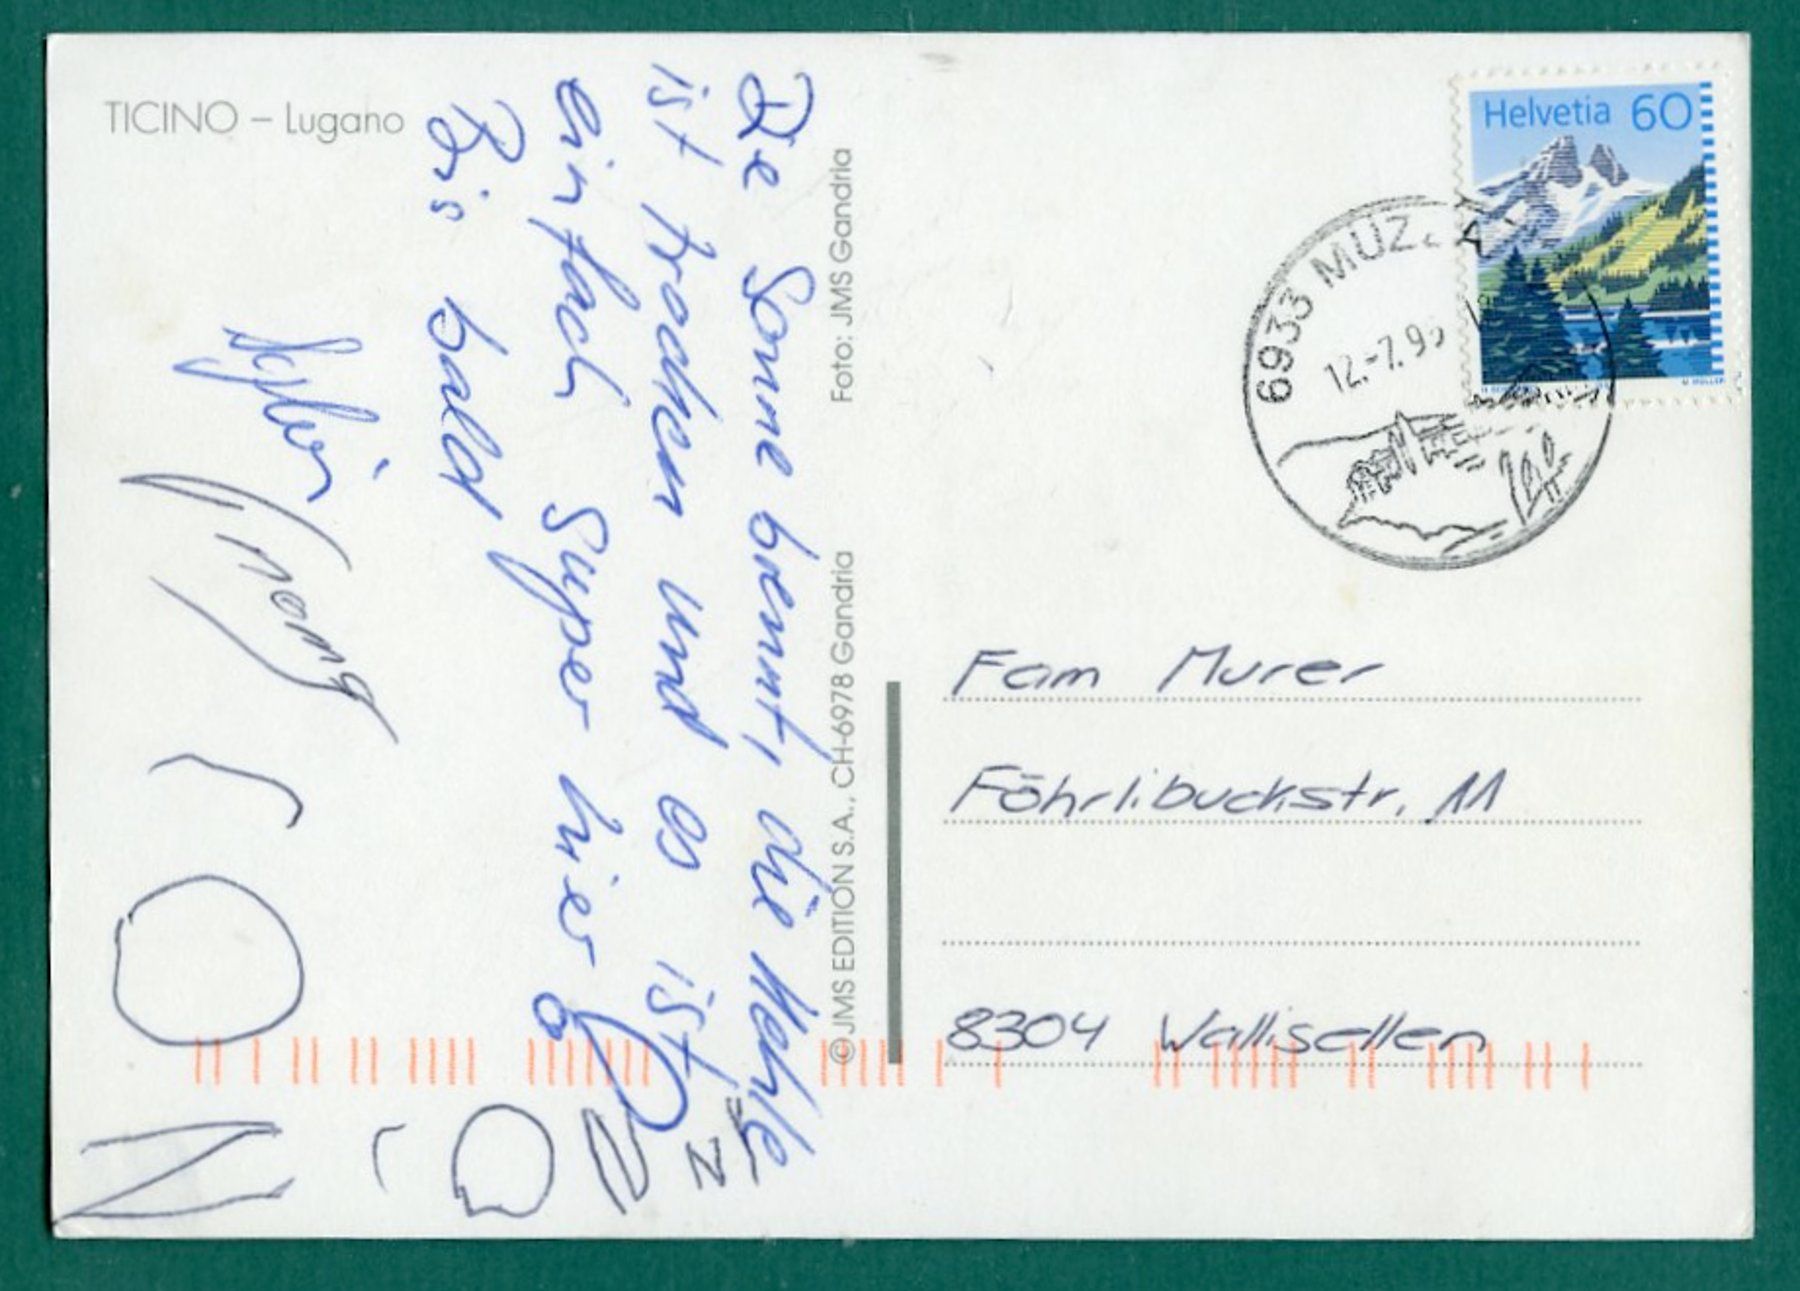 TICINO – Lugano
Die Sonne brennt, die Kehle
ist trocken und es ist
einfach Super hier
Bis bald
Sylvi
Foto: JMS Gandria
© JMS EDITION S.A., CH-6978 Gandria
Helvetia 60
6933 MUZZANO
12.-7.95
Fam Murer
Föhrlibuckstr. 11
8304 Wallisellen